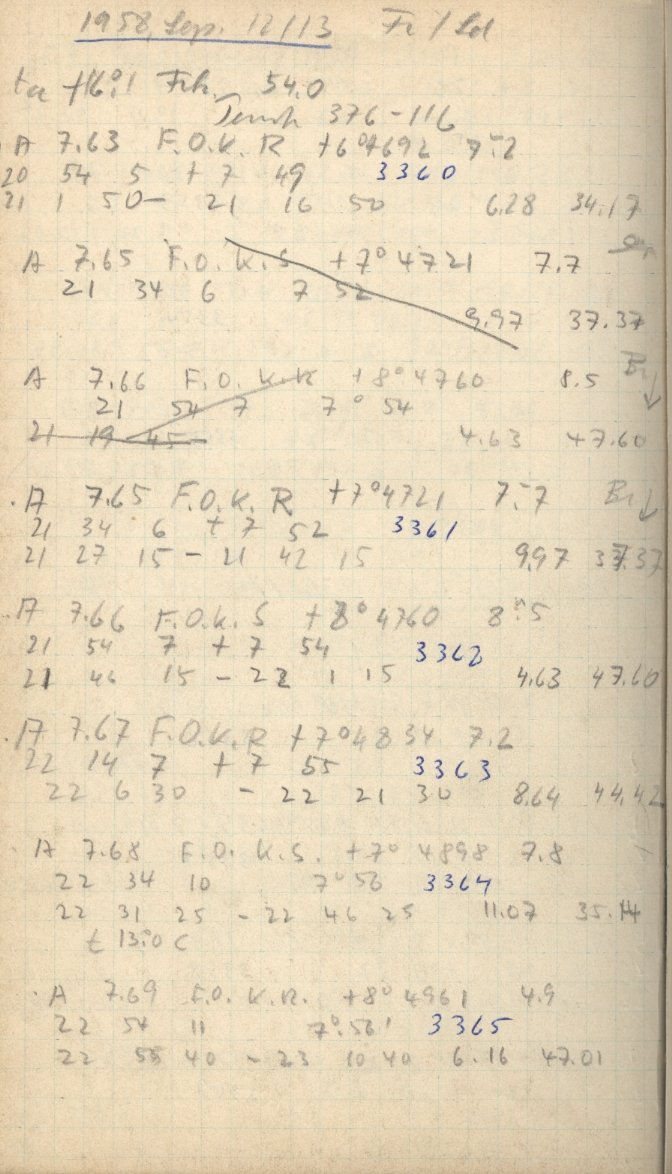 1958, Sep. 12/13 Fr / Sd
ta +16°.1 Frk. 54.0
376-116
A 7.63 F.O.K.R +6°4692 7.2
20 54 5 + 7 49 3360
21 1 50 - 21 16 50 6.28 34.17
A 7.65 F.O.K.S +7° 4721 7.7
21 34 6 7 52
9.97 37.37
A 7.66 F.O.K.R +8° 4760 8.5
21 54 7 7° 54
21 19 45 4.63 47.60
A 7.65 F.O.K.R +7°4721 7.7
21 34 6 + 7 52 3361
21 27 15 - 21 42 15 9.97 37.37
A 7.66 F.O.K.S +8°4760 8.5
21 54 7 + 7 54 3362
21 46 15 - 22 1 15 4.63 47.60
A 7.67 F.O.K.R +7°4834 7.2
22 14 7 + 7 55 3363
22 6 30 - 22 21 30 8.64 44.42
A 7.68 F.O.K.S. +7° 4898 7.8
22 34 10 7° 56 3364
22 31 25 - 22 46 25 11.07 35.14
t 13.0 C
A 7.69 F.O.K.R. +8° 4961 4.9
22 54 11 7°.56' 3365
22 55 40 - 23 10 40 6.16 47.01